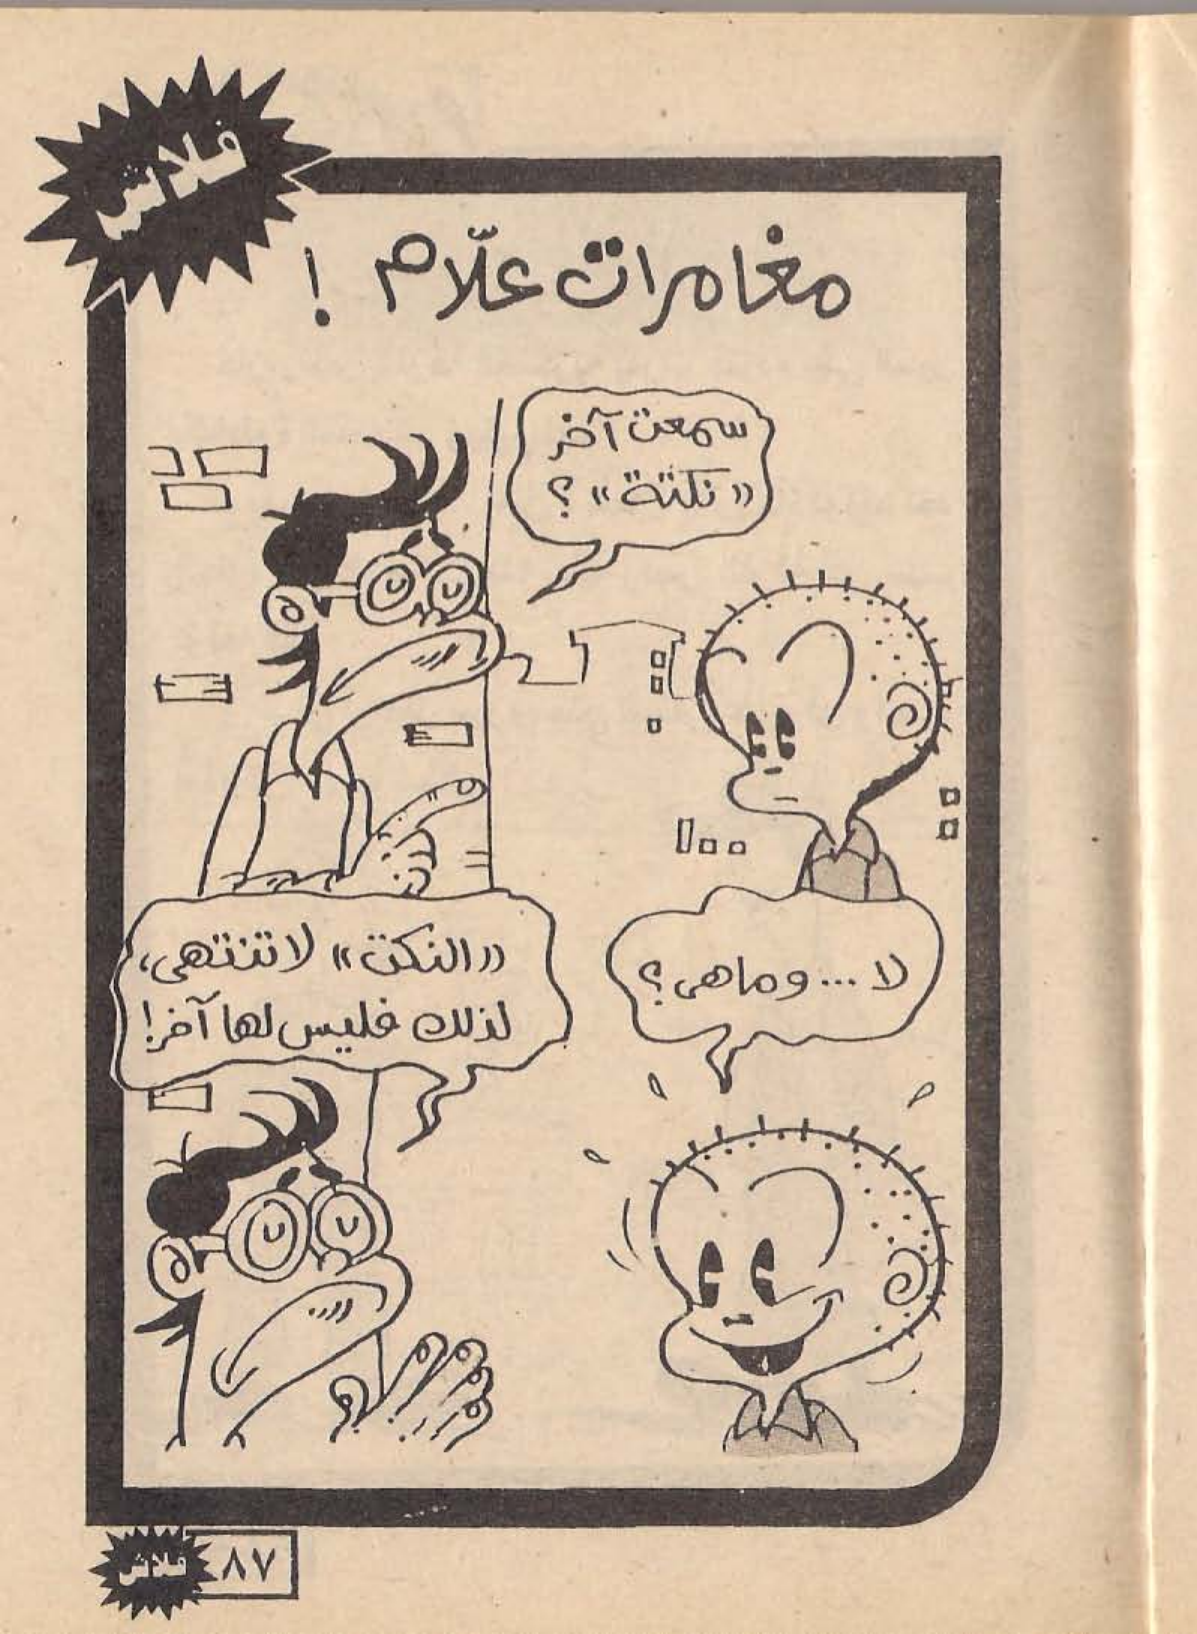 فلاش
مغامرات علّام !
سمعت آخر
«نكتة» ؟
لا ... وماهى؟
«النكت» لا تنتهى،
لذلك فليس لها آخر!
فلاش
٨٧